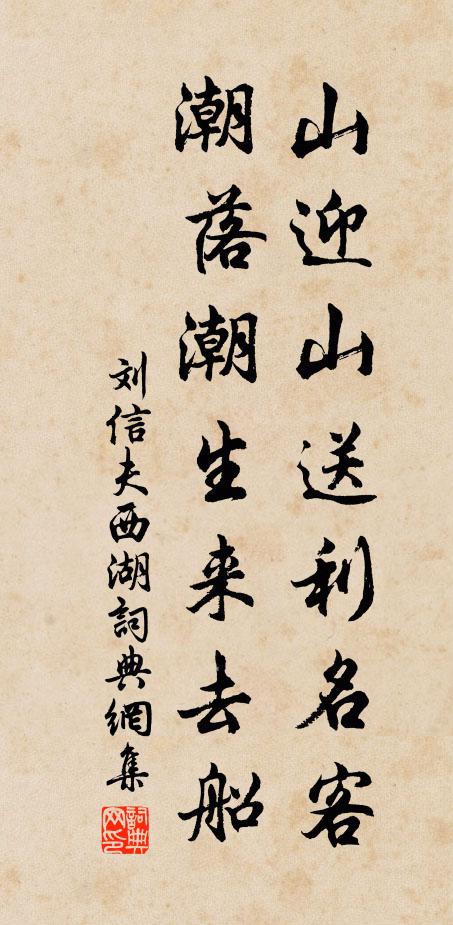 山迎山送利名客
潮落潮生来去船
刘信夫西湖詞典網集
詞典网印